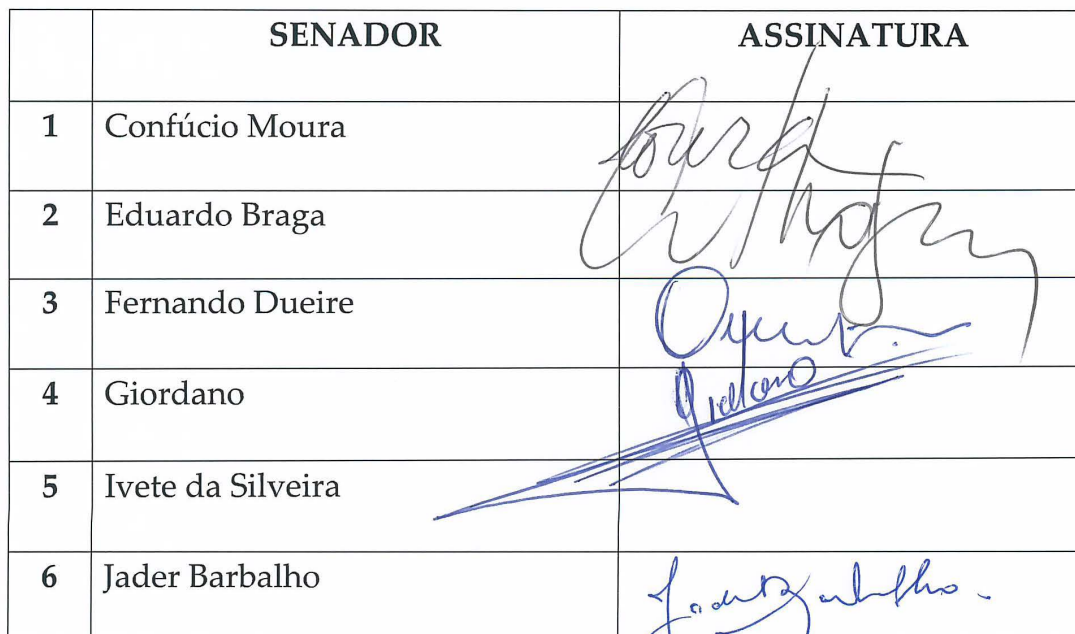 SENADOR ASSINATURA
1 Confúcio Moura
2 Eduardo Braga
3 Fernando Dueire
4 Giordano Giordano
5 Ivete da Silveira
6 Jader Barbalho Jader Barbalho